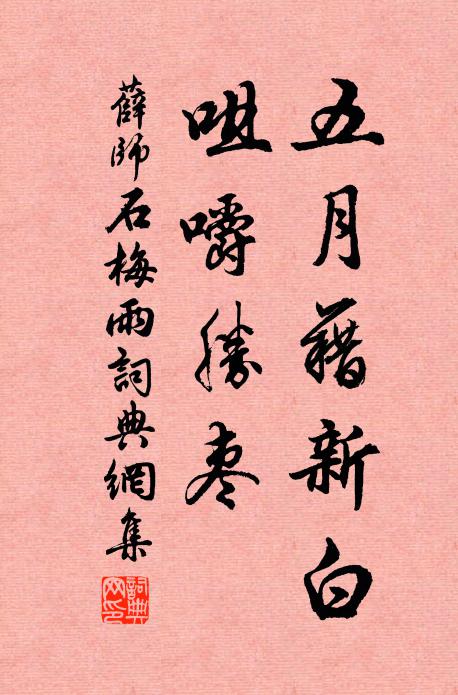 五月藕新白
咀嚼勝枣
薛師石梅雨詞典網集
詞典网印